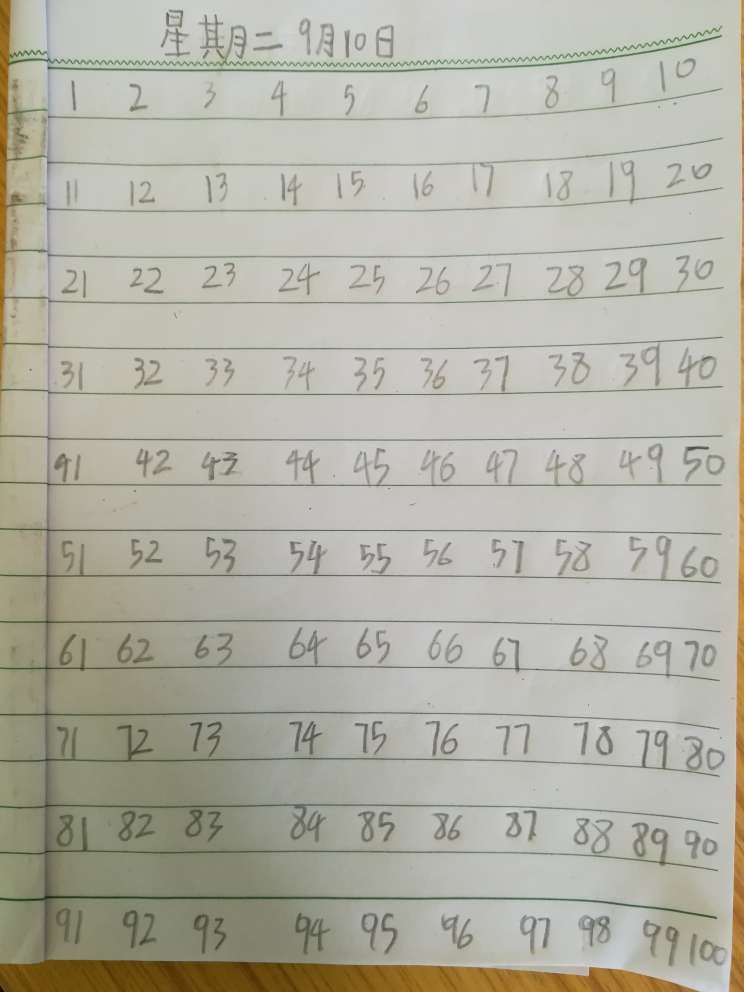 星期二 9月10日
1 2 3 4 5 6 7 8 9 10
11 12 13 14 15 16 17 18 19 20
21 22 23 24 25 26 27 28 29 30
31 32 33 34 35 36 37 38 39 40
41 42 43 44 45 46 47 48 49 50
51 52 53 54 55 56 57 58 59 60
61 62 63 64 65 66 67 68 69 70
71 72 73 74 75 76 77 78 79 80
81 82 83 84 85 86 87 88 89 90
91 92 93 94 95 96 97 98 99 100